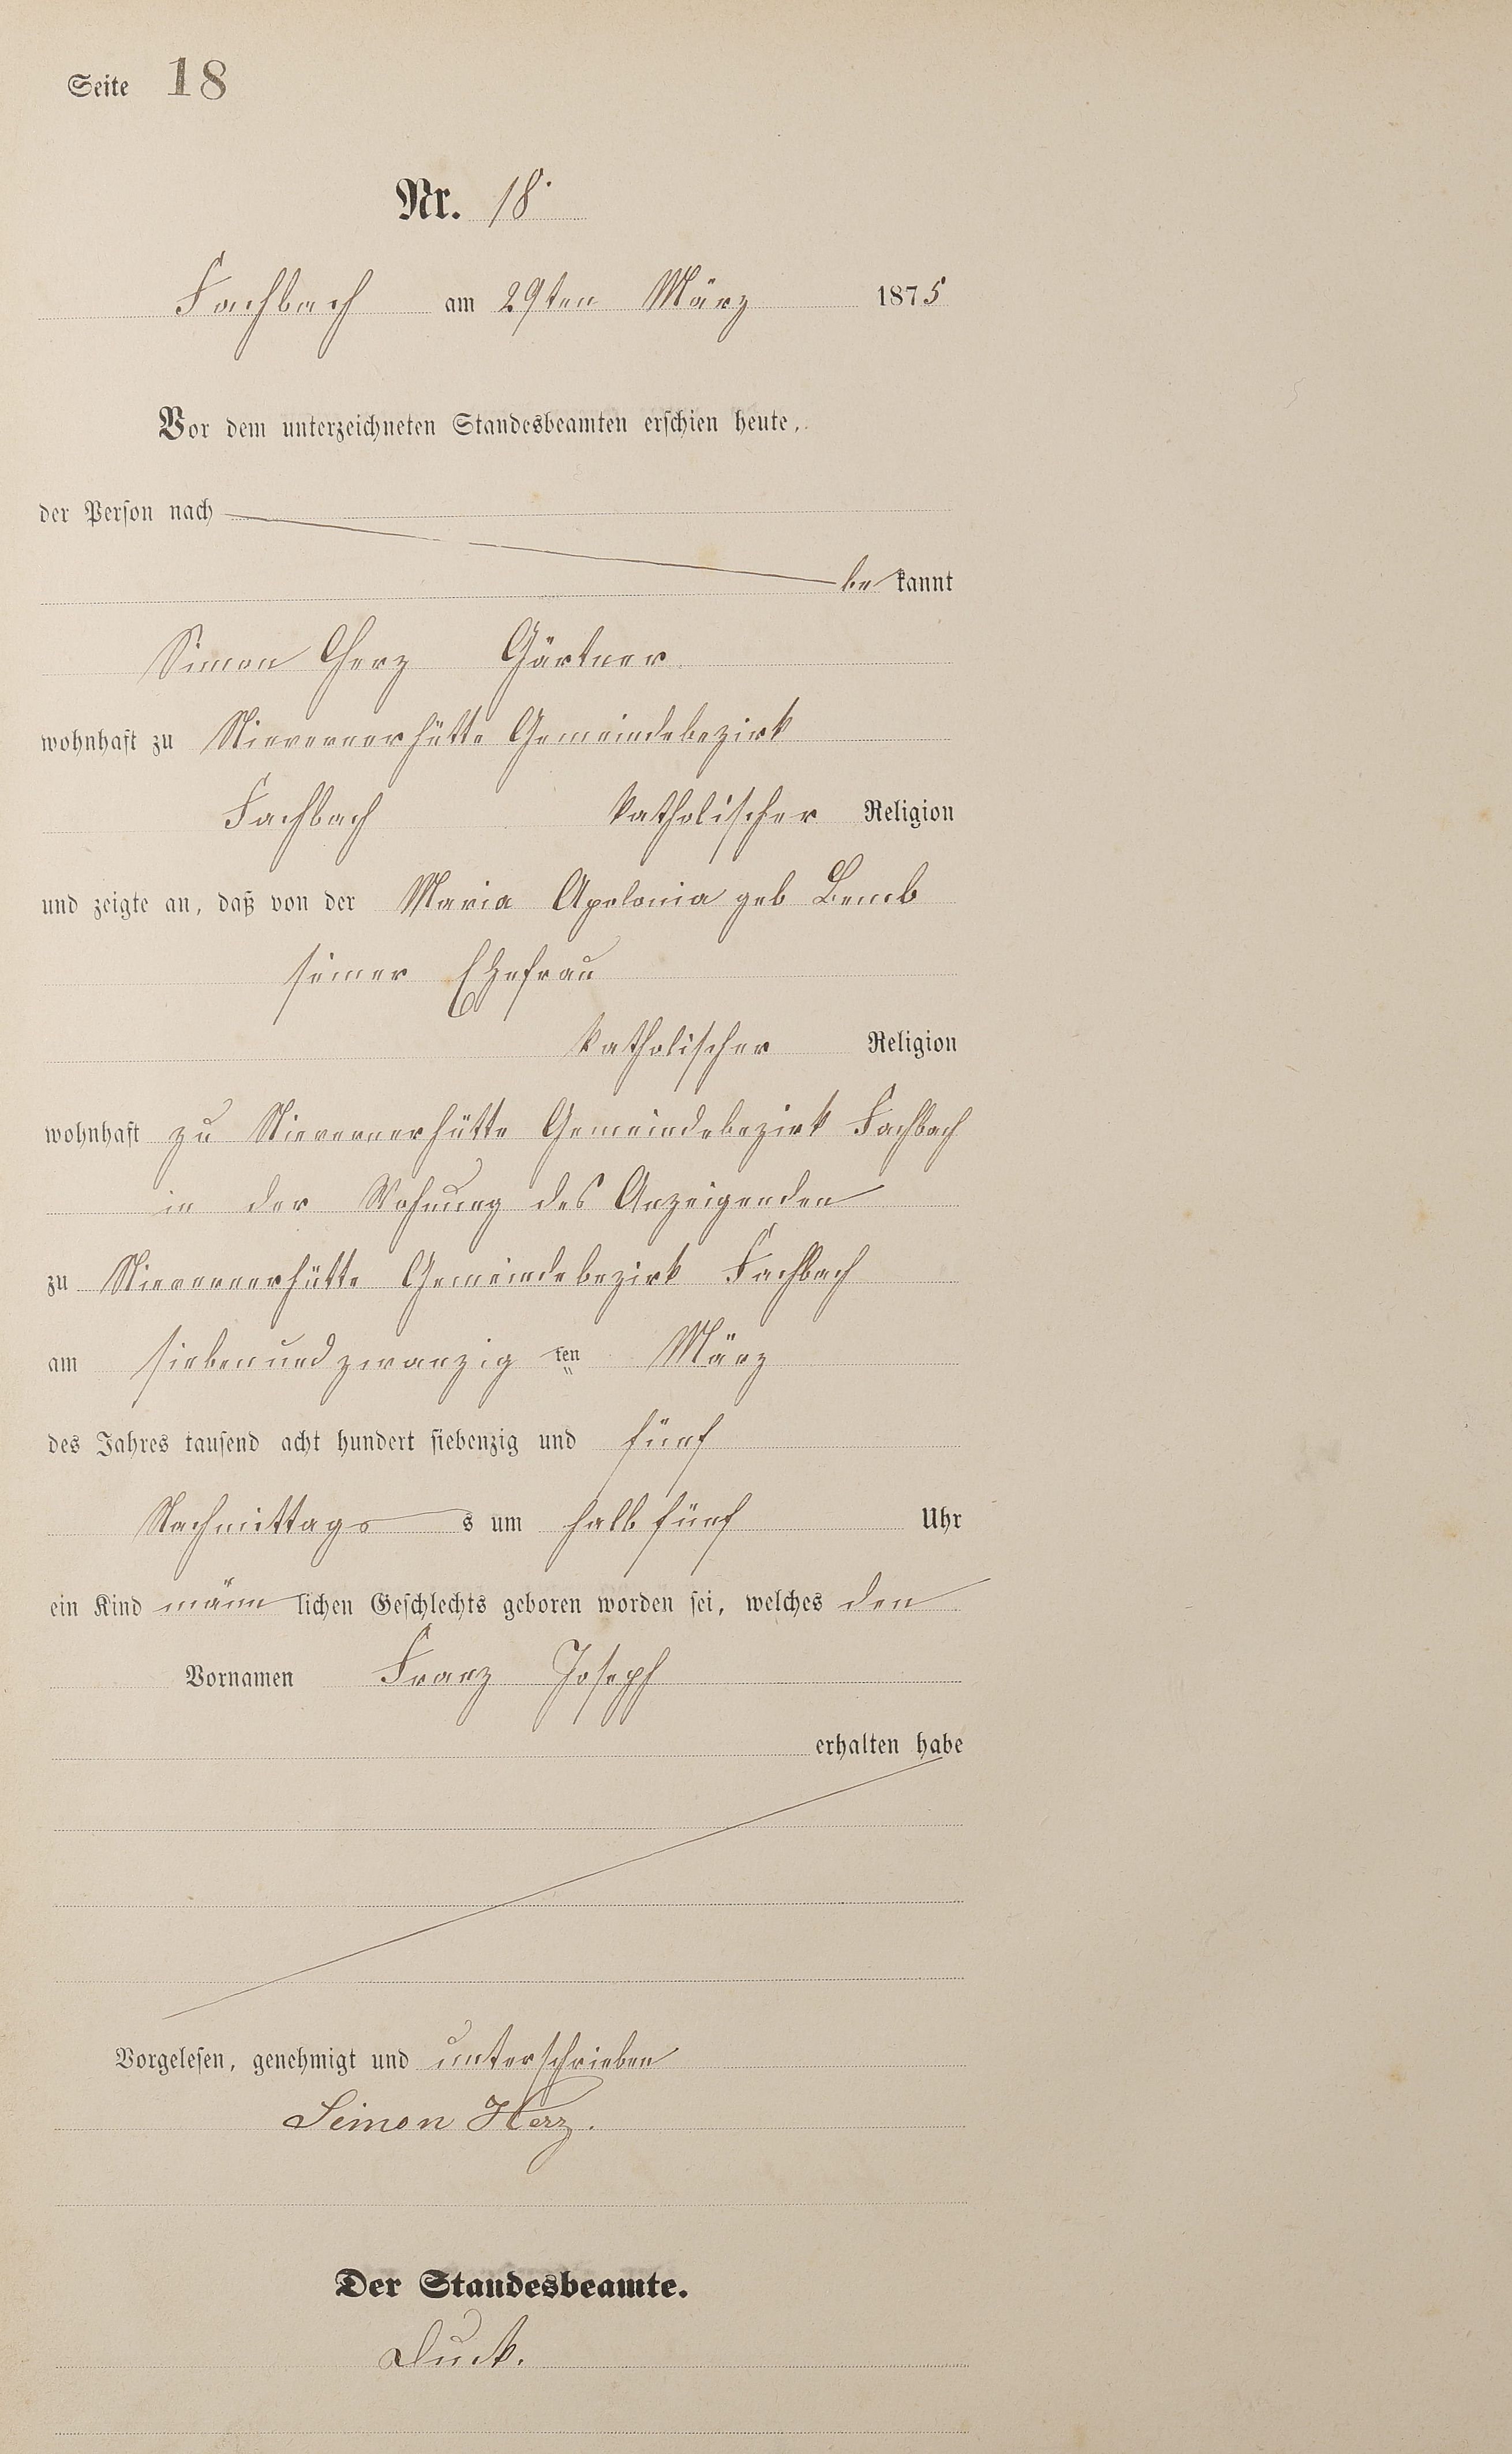 Seite 18
Nr. 18.
Fachbach am 29ten März 1875
Vor dem unterzeichneten Standesbeamten erschien heute,
der Person nach
be kannt
Simon Herz Gärtner
wohnhaft zu Nievernerhütte Gemeindebezirk
Fachbach katholischer Religion
und zeigte an, daß von der Maria Apolonia geb Bemb
seiner Ehefrau
katholischer Religion
wohnhaft zu Nievernerhütte Gemeindebezirk Fachbach
in der Wohnung des Anzeigenden
zu Nievernerhütte Gemeindebezirk Fachbach
am siebenundzwanzig ten März
des Jahres tausend acht hundert siebenzig und fünf
Nachmittags s um halb fünf Uhr
ein Kind männ lichen Geschlechts geboren worden sei, welches den
Vornamen Franz Joseph
erhalten habe
Vorgelesen, genehmigt und unterschrieben
Simon Herz.
Der Standesbeamte.
Duck.